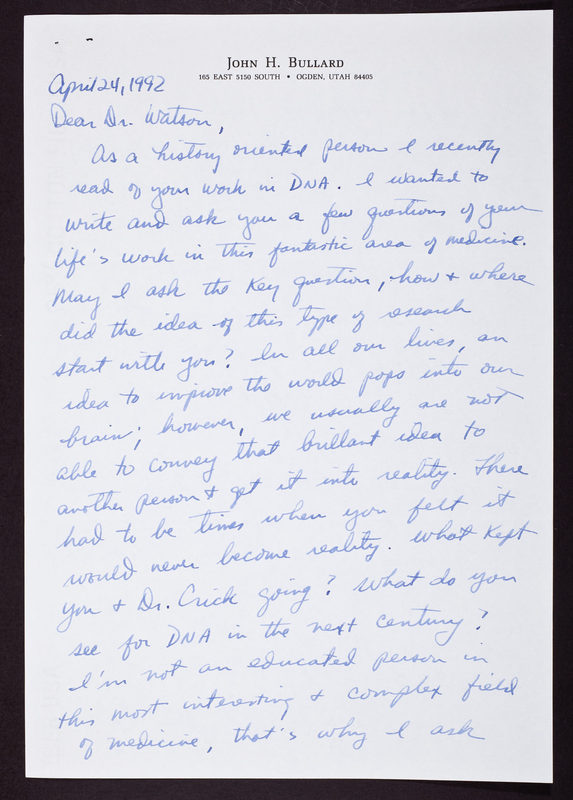 JOHN H. BULLARD
165 EAST 5150 SOUTH • OGDEN, UTAH 84405
April 24, 1992
Dear Dr. Watson,
As a history oriented person I recently
read of your work in DNA. I wanted to
write and ask you a few questions of your
life's work in this fantastic area of medicine.
May I ask the key question, how & where
did the idea of this type of research
start with you? In all our lives, an
idea to improve the world pops into our
brain; however, we usually are not
able to convey that brillant idea to
another person & get it into reality. There
had to be times when you felt it
would never become reality. What kept
you & Dr. Crick going? What do you
see for DNA in the next century?
I'm not an educated person in
this most interesting & complex field
of medicine, that's why I ask